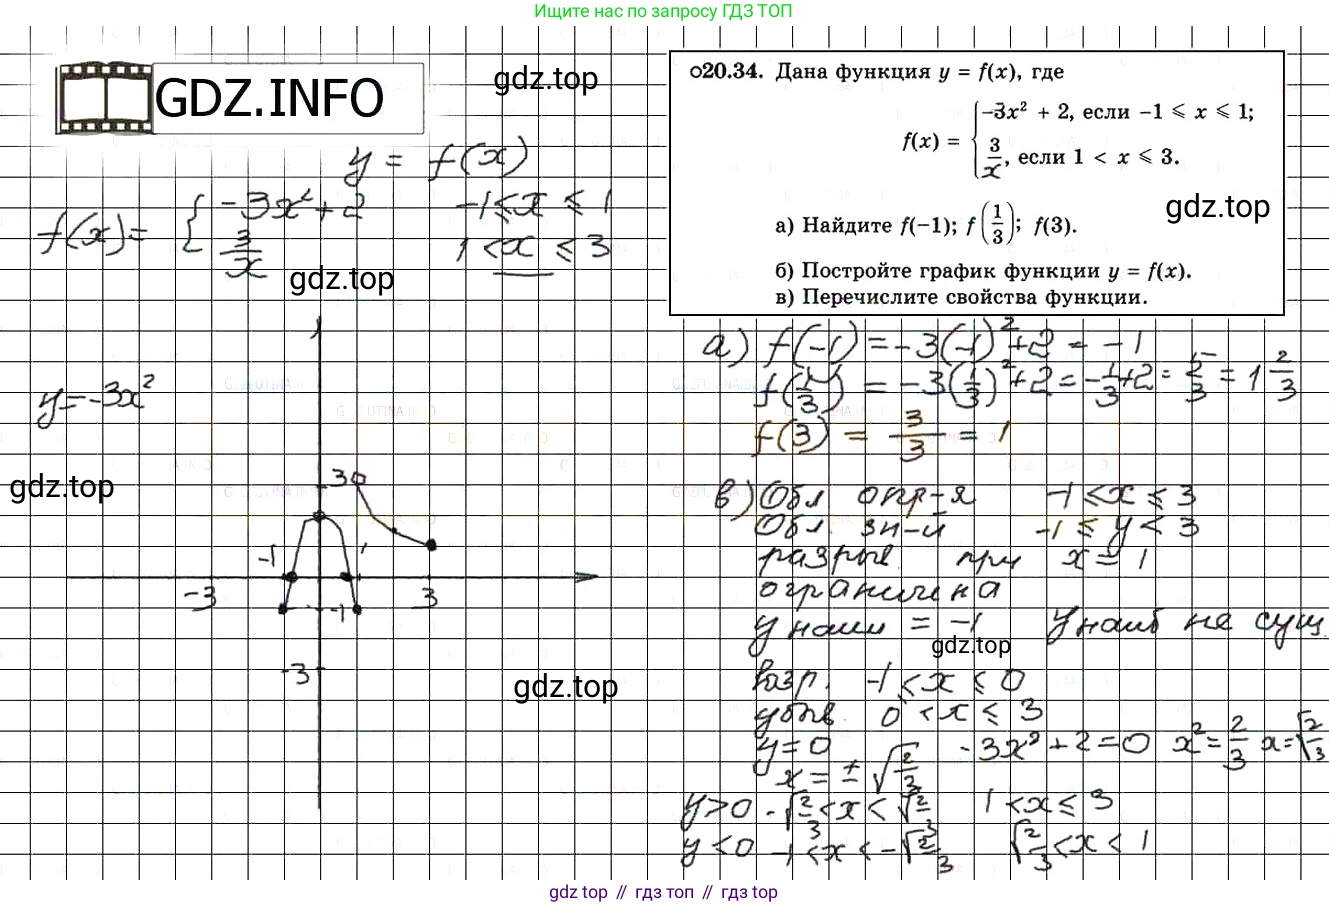 Ищите нас по запросу ГДЗ ТОП
GDZ.INFO
gdz.top
○20.34. Дана функция y = f(x), где
f(x) = { -3x² + 2, если -1 ⩽ x ⩽ 1;
3/x, если 1 < x ⩽ 3.
gdz.top
а) Найдите f(-1); f(1/3); f(3).
б) Постройте график функции y = f(x).
в) Перечислите свойства функции.
y = f(x)
f(x) = { -3x² + 2 -1 ⩽ x ⩽ 1
3/x 1 < x ⩽ 3
gdz.top
y = -3x²
gdz.top
3
-1 1
-3 3
-1
-3
gdz.top
а) f(-1) = -3(-1)² + 2 = -1
f(1/3) = -3(1/3)² + 2 = -1/3 + 2 = 5/3 = 1 2/3
f(3) = 3/3 = 1
в) Обл опр-я -1 < x ⩽ 3
Обл. зн-й -1 ⩽ y < 3
разрыв при x = 1
ограничена
y наим = -1 y наиб не сущ.
gdz.top
возр. -1 < x ⩽ 0
убыв. 0 < x ⩽ 3
y = 0 -3x² + 2 = 0 x² = 2/3 x = √2/3
x = ± √2/3
y > 0 -√2/3 < x < √2/3 1 < x ⩽ 3
y < 0 -1 < x < -√2/3 √2/3 < x < 1
gdz top // гдз топ // gdz top